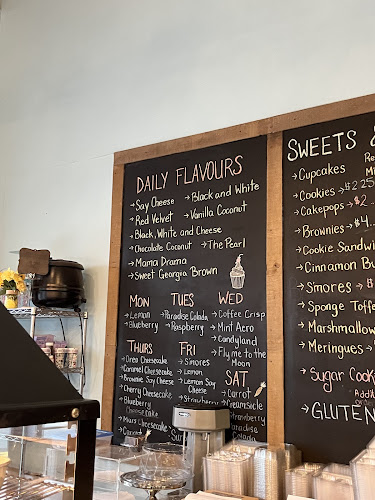 DAILY FLAVOURS
→ Say Cheese → Black and White
→ Red Velvet → Vanilla Coconut
→ Black, White and Cheese
→ Chocolate Coconut → The Pearl
→ Mama Drama
→ Sweet Georgia Brown
MON
→ Lemon
→ Blueberry
TUES
→ Paradise Colada
→ Raspberry
WED
→ Coffee Crisp
→ Mint Aero
→ Candyland
→ Fly me to the
Moon
THURS
→ Oreo Cheesecake
→ Caramel Cheesecake
→ Brownie, Soy Cheese
→ Cherry Cheesecake
→ Blueberry
Cheesecake
→ Mars Cheesecake
→ Carrot
FRI
→ S'mores
→ Lemon
→ Lemon Say
Cheese
→ Strawberry
SAT
→ Carrot
→ Creamsicle
→ Strawberry
→ Paradise
Colada
→ Blueberry
SWEETS
→ Cupcakes Re
Mi
→ Cookies → $2.25
→ Cakepops → $2
→ Brownies → $4
→ Cookie Sandwi
→ Cinnamon Bu
→ S'mores → $
→ Sponge Toffe
→ Marshmallow
→ Meringues →
→ Sugar Cook
Addit
→ GLUTEN